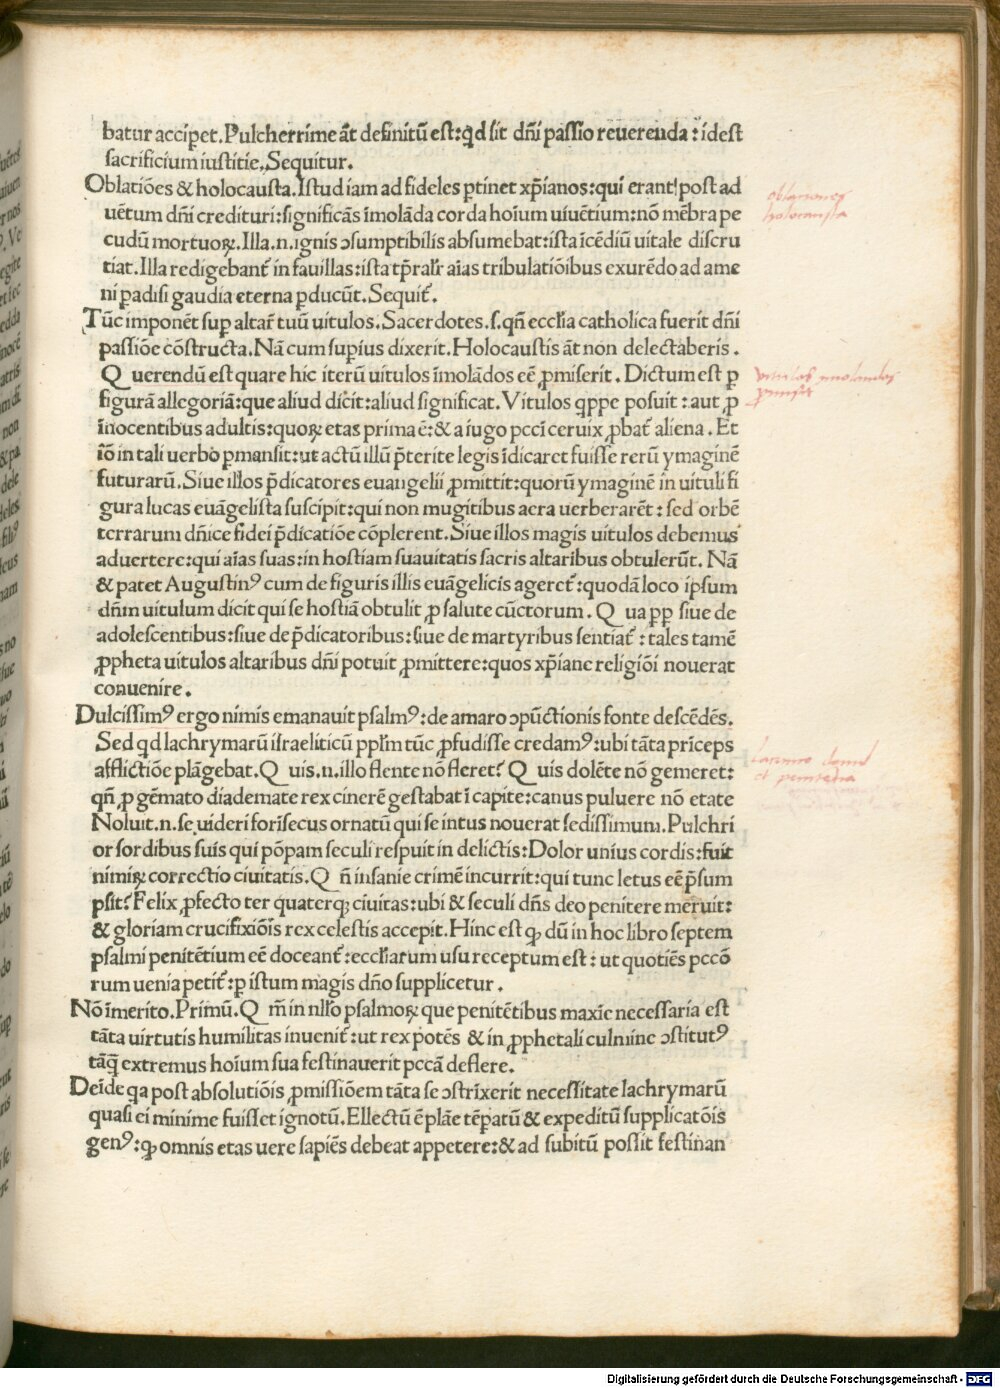 batur accipet. Pulcherrime āt definitū est: qd sit dñi passio reuerenda: idest
sacrificium iustitie. Sequitur.
Oblatiōes & holocausta. Istud iam ad fideles ꝑtinet xp̄ianos: qui erant post ad
uētum dñi credituri: significās īmolāda corda hoīum uiuētium: nō mēbra pe
cudū mortuoꝝ. Illa .n. ignis ↄsumptibilis absumebat: ista īcēdiū uitale discru
tiat. Illa redigebant̄ in fauillas: ista tp̄ralr̄ aīas tribulatiōibus exurēdo ad ame
ni padisi gaudia eterna ꝑducūt. Sequit̄.
Tūc imponēt suꝑ altar̄ tuū uitulos. Sacerdotes .s. qñ ecclīa catholica fuerit dñi
passiōe cōstructa. Nā cum supius dixerit. Holocaustis āt non delectaberis.
Q uerendū est quare hic iterū uitulos īmolādos eē ꝓmiserit. Dictum est ꝑ
figurā allegoriā: que aliud dicit: aliud significat. Vitulos qppe posuit: aut ꝓ
īnocentibus adultis: quoꝝ etas prima ē: & a iugo pccī ceruix ꝓbat̄ aliena. Et
īō in tali uerbo ꝑmansit: ut actū illū p̄terite legis īdicaret fuisse rerū ymaginē
futurarū. Siue illos p̄dicatores euangelii ꝓmittit: quorū ymaginē in uituli fi
gura lucas euāgelista suscipit: qui non mugitibus aera uerberarēt: sed orbē
terrarum dñice fidei p̄dicatiōe cōplerent. Siue illos magis uitulos debemus
aduertere: qui aīas suas: in hostiam suauitatis sacris altaribus obtulerūt. Nā
& pater Augustinꝰ cum de figuris illis euāgelicis ageret̄: quodā loco ipsum
dñm uitulum dicit qui se hostiā obtulit ꝓ salute cūctorum. Q ua pp siue de
adolescentibus: siue de p̄dicatoribus: siue de martyribus sentiat̄: tales tamē
ꝓpheta uitulos altaribus dñi potuit ꝓmittere: quos xp̄iane religiōi nouerat
conuenire.
Dulcissimꝰ ergo nimis emanauit psalmꝰ: de amaro ↄpūctionis fonte descēdēs.
Sed qd lachrymarū israeliticū pplm tūc ꝓfudisse credamꝰ: ubi tāta prīceps
afflictiōe plāgebat. Q uis .n. illo flente nō fleret? Q uis dolēte nō gemeret:
qñ ꝓ gēmato diademate rex cinerē gestabat ī capite: canus puluere nō etate
Noluit .n. se uideri forīsecus ornatū qui se intus nouerat sedissimum. Pulchri
or sordibus suis qui pōpam seculi respuit in delictis: Dolor unius cordis: fuit
nimiꝝ correctio ciuitatis. Q ñ insanie crimē incurrit: qui tunc letus eē p̄sum
psit? Felix ꝓfecto ter quaterqꝫ ciuitas: ubi & seculi dñs deo penitere meruit:
& gloriam crucifixiōīs rex celestis accepit. Hinc est ꝙ dū in hoc libro septem
psalmi penitētium eē doceant̄: ecclīarum usu receptum est: ut quotiēs pccō
rum uenia petit̄: ꝑ istum magis dño supplicetur.
Nō īmerito. Primū. Q m̄ in nllo psalmoꝝ que penitētibus maxīe necessaria est
tāta uirtutis humilitas inuenit̄: ut rex potēs & in ꝓphetali culmine ↄstitutꝰ
tāq̄ extremus hoīum sua festinauerit pccā deflere.
Deīde qa post absolutiōis ꝓmissiōem tāta se ↄstrīxerit necessitate lachrymarū
quasi ei minime fuisset ignotū. Ellectū ē plāe tēpatū & expeditū supplicatōis
genꝰ: ꝙ omnis etas uere sapiēs debeat appetere: & ad subitū possit festinan
oblationes
holocausta
Digitalisierung gefördert durch die Deutsche Forschungsgemeinschaft - DFG